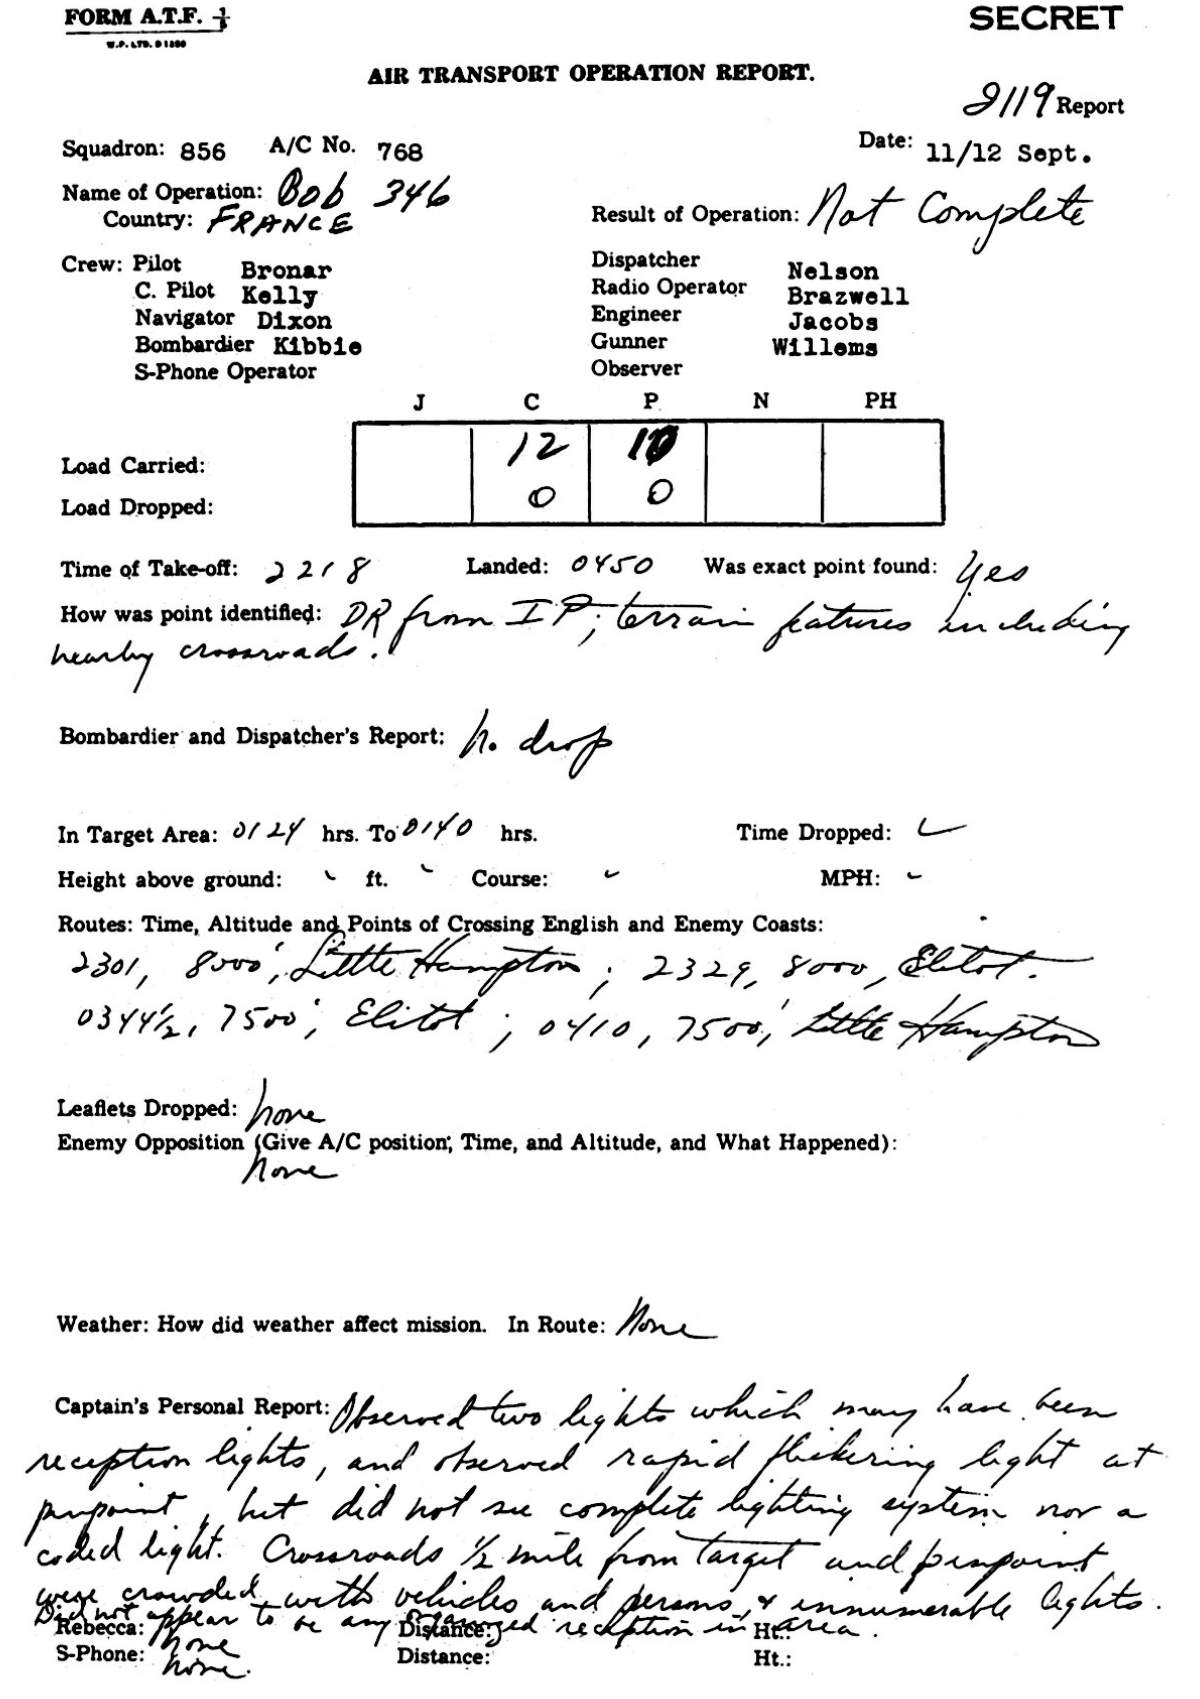 FORM A.T.F. 1/3
W.P. LTD. D1200
SECRET
AIR TRANSPORT OPERATION REPORT.
2119 Report
Squadron: 856 A/C No. 768 Date: 11/12 Sept.
Name of Operation: Bob 346
Country: FRANCE Result of Operation: Not Complete
Crew: Pilot Bronar Dispatcher Nelson
C. Pilot Kelly Radio Operator Brazwell
Navigator Dixon Engineer Jacobs
Bombardier Kibbie Gunner Willems
S-Phone Operator Observer
J C P N PH
Load Carried: 12 10
Load Dropped: 0 0
Time of Take-off: 2218 Landed: 0450 Was exact point found: Yes
How was point identified: DR from IP; terrain features including
nearby crossroads.
Bombardier and Dispatcher's Report: No drop
In Target Area: 0124 hrs. To 0140 hrs. Time Dropped:
Height above ground: ft. Course: MPH:
Routes: Time, Altitude and Points of Crossing English and Enemy Coasts:
2301, 8000', Little Hampton; 2329, 8000, Elitot.
0344½, 7500', Elitot; 0410, 7500', Little Hampton
Leaflets Dropped: None
Enemy Opposition (Give A/C position, Time, and Altitude, and What Happened):
None
Weather: How did weather affect mission. In Route: None
Captain's Personal Report: Observed two lights which may have been
reception lights, and observed rapid flickering light at
pinpoint, but did not see complete lighting system nor a
coded light. Crossroads ½ mile from target and pinpoint
were crowded with vehicles and persons, & innumerable lights.
Did not appear to be any organized reception in area.
Rebecca: None Distance: Ht.:
S-Phone: None. Distance: Ht.: